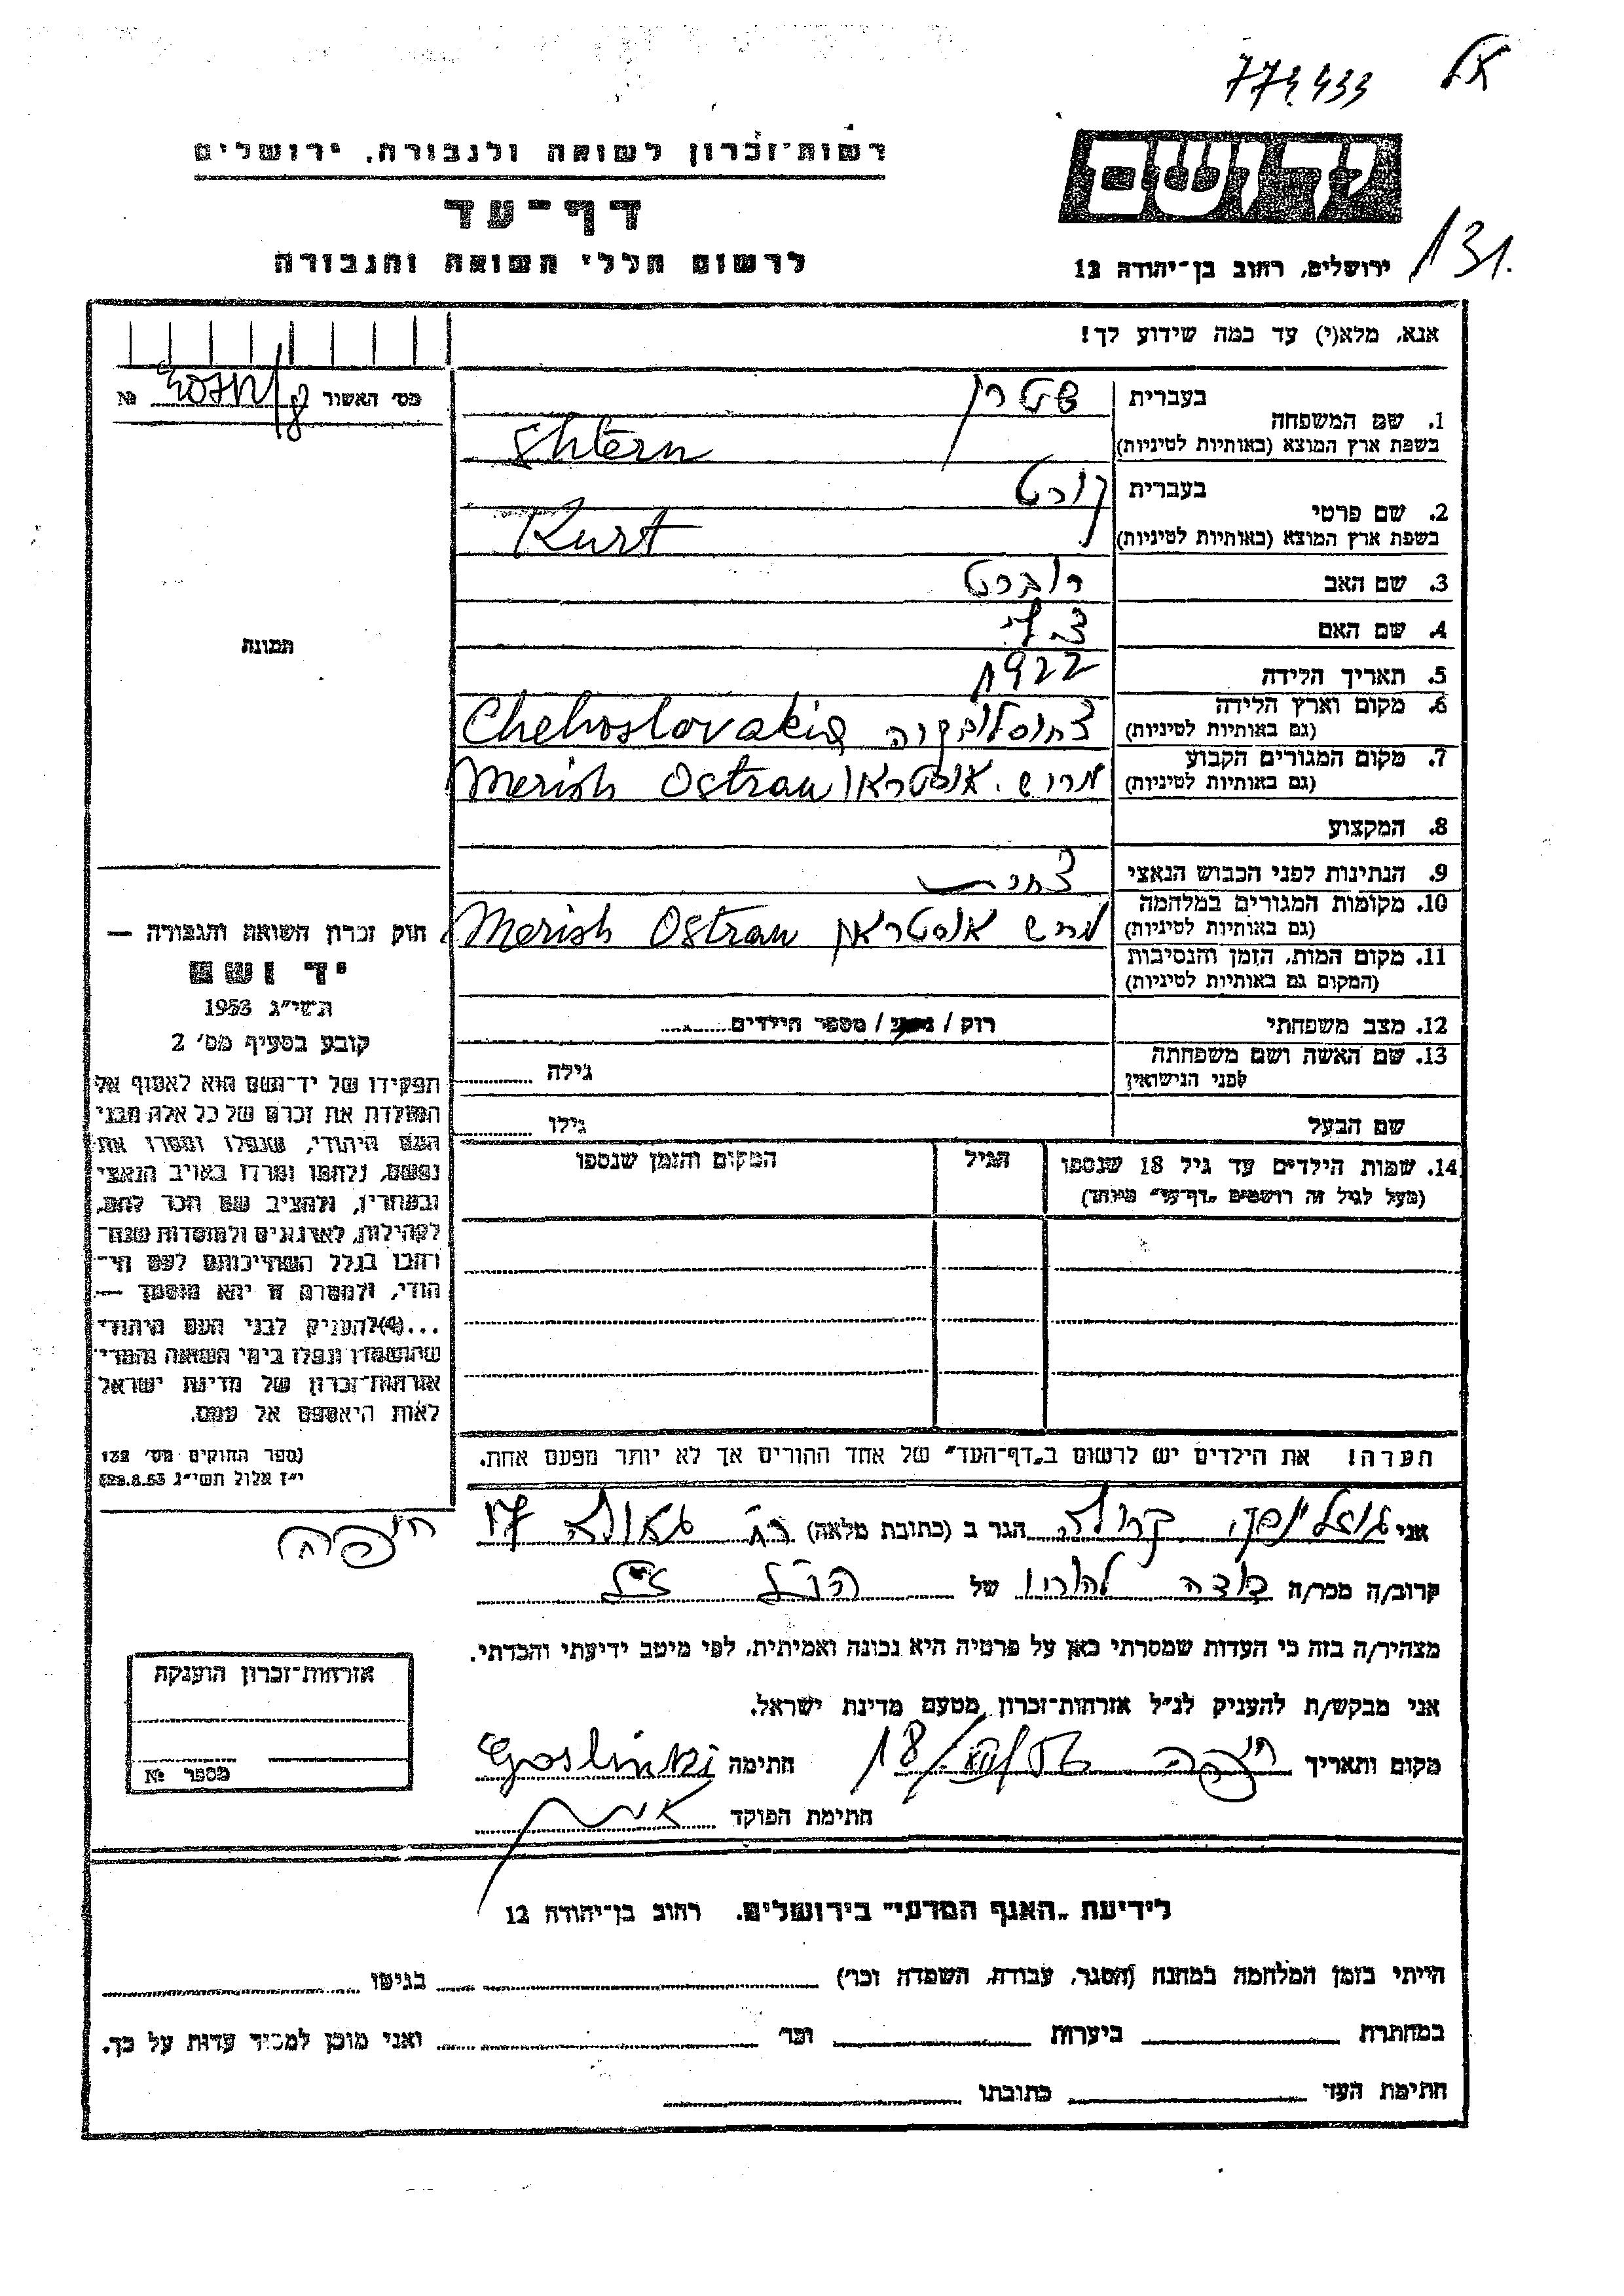 773433
רשות־זכרון לשואה ולגבורה, ירושלים
דף־עד
לרשום חללי השואה והגבורה
יד ושם
ירושלים, רחוב בן־יהודה 12
131.
אנא, מלא(י) עד כמה שידוע לך!
מס׳ האשור №
1. שם המשפחה בעברית שטרן
בשפת ארץ המוצא (באותיות לטיניות) Shtern
2. שם פרטי בעברית קורט
בשפת ארץ המוצא (באותיות לטיניות) Kurt
3. שם האב רוברט
4. שם האם
תמונה
5. תאריך הלידה 1922
6. מקום וארץ הלידה (גם באותיות לטיניות) צ'כוסלובקיה Chehoslovakia
7. מקום המגורים הקבוע (גם באותיות לטיניות) מריש. אוסטראו Merish Ostrau
8. המקצוע
9. הנתינות לפני הכבוש הנאצי צ'כית
10. מקומות המגורים במלחמה (גם באותיות לטיניות) מריש אוסטראו Merish Ostrau
11. מקום המות, הזמן והנסיבות (המקום גם באותיות לטיניות)
12. מצב משפחתי רוק / נשוי / מספר הילדים
13. שם האשה ושם משפחתה לפני הנישואין גילה
שם הבעל גילו
14. שמות הילדים עד גיל 18 שנספו הגיל המקום והזמן שנספו
(מעל לגיל זה רושמים „דף־עד״ מיוחד)
חוק זכרון השואה והגבורה —
יד ושם
תשי״ג 1953
קובע בסעיף מס׳ 2
תפקידו של יד־ושם הוא לאסוף אל
המולדת את זכרם של כל אלה מבני
העם היהודי, שנפלו ומסרו את
נפשם, נלחמו ומרדו באויב הנאצי
ובעוזריו, ולהציב שם וזכר להם,
לקהילות, לארגונים ולמוסדות שנח־
רבו בגלל השתייכותם לעם הי־
הודי, ולמטרה זו יהא מוסמך —
...(4) להעניק לבני העם היהודי
שהושמדו ונפלו בימי השואה והמרי
אזרחות־זכרון של מדינת ישראל
לאות היאספם אל עמם.
(ספר החוקים מס׳ 132
י״ז אלול תשי״ג 28.8.53)
הערה! את הילדים יש לרשום ב„דף־העד״ של אחד ההורים אך לא יותר מפעם אחת.
אני גוזלינסקי הגר ב (כתובת מלאה) רח' גאולה 17
חיפה
קרוב/ה מכר/ה של הנ"ל
מצהיר/ה בזה כי העדות שמסרתי כאן על פרטיה היא נכונה ואמיתית, לפי מיטב ידיעתי והכרתי.
אני מבקש/ת להעניק לנ״ל אזרחות־זכרון מטעם מדינת ישראל.
מקום ותאריך חיפה חתימה Goslinki
חתימת הפוקד
אזרחות־זכרון הוענקה
מספר №
לידיעת „האגף המדעי״ בירושלים, רחוב בן־יהודה 12
הייתי בזמן המלחמה במחנה (הסגר, עבודה, השמדה וכו׳) בגיטו
במחתרת ביערות וכו׳ ואני מוכן למסור עדות על כך.
חתימת העד כתובתו